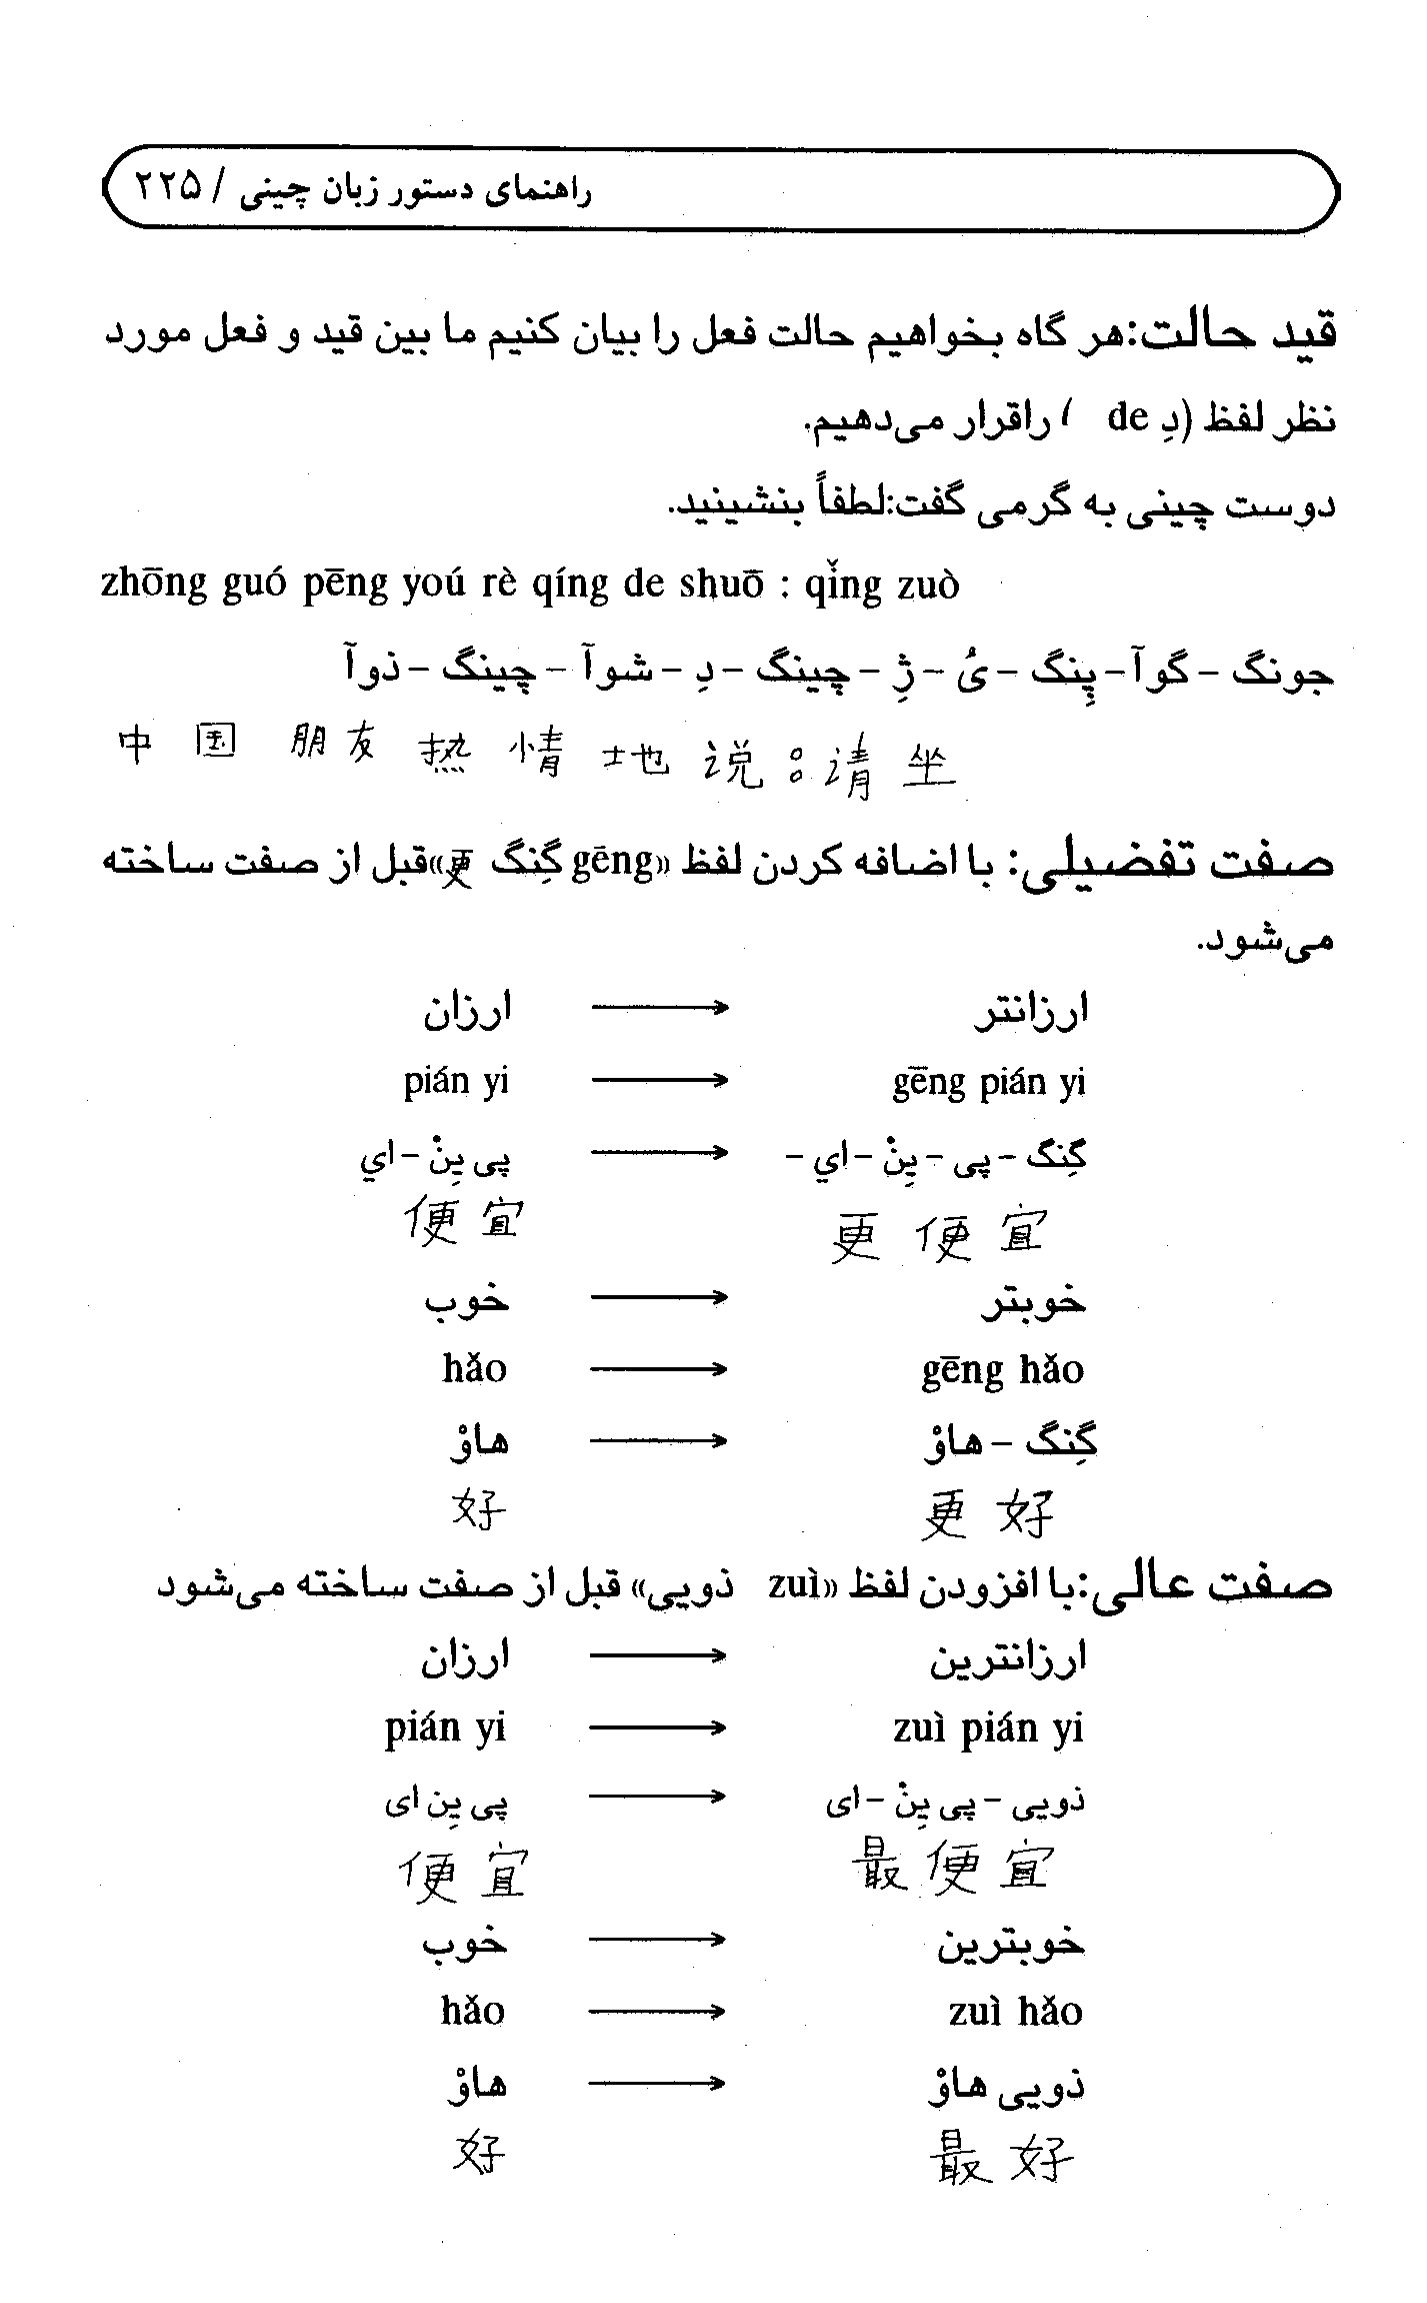 راهنمای دستور زبان چینی / ۲۲۵
قید حالت:هر گاه بخواهیم حالت فعل را بیان کنیم ما بین قید و فعل مورد
نظر لفظ (دِ de ) راقرار می‌دهیم.
دوست چینی به گرمی گفت:لطفاً بنشینید.
zhōng guó pēng yoú rè qíng de shuō : qǐng zuò
جونگ - گوآ - پِنگ - یُ - ژِ - چینگ - دِ - شوآ - چینگ - ذوآ
中 国 朋 友 热 情 地 说 : 请 坐
صفت تفضیلی: با اضافه کردن لفظ «gēng گِنگ 更»قبل از صفت ساخته
می‌شود.
ارزان → ارزانتر
pián yi → gēng pián yi
پی یِنْ - اي → گِنگ - پی - یِنْ - اي -
便 宜 更 便 宜
خوب → خوبتر
hǎo → gēng hǎo
هاوْ → گِنگ - هاوْ
好 更 好
صفت عالی:با افزودن لفظ «zuì ذویی» قبل از صفت ساخته می‌شود
ارزان → ارزانترین
pián yi → zuì pián yi
پی یِن ای → ذویی - پی یِنْ - ای
便 宜 最 便 宜
خوب → خوبترین
hǎo → zuì hǎo
هاوْ → ذویی هاوْ
好 最 好